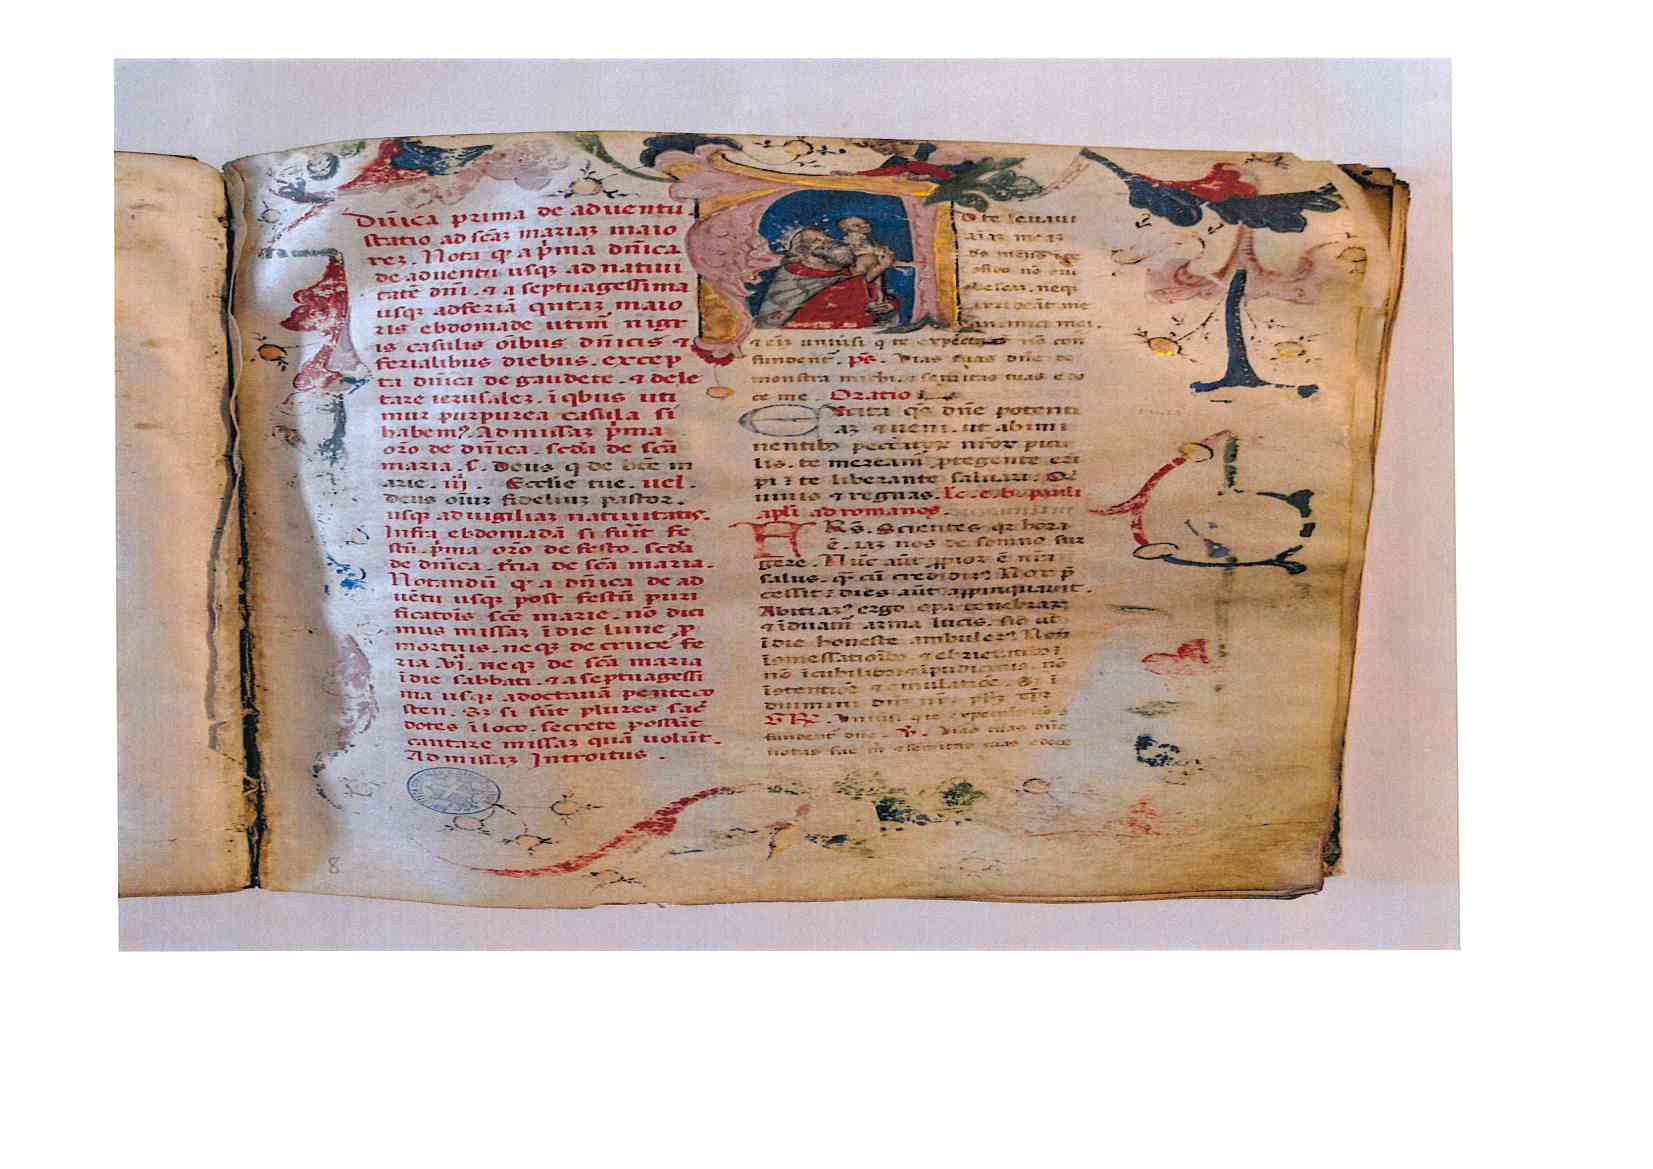 Dñica prima de aduentu
statio ad scãꝫ mariaꝫ maio
reꝫ. Nota qꝛ a p̃ma dñica
de aduentu usqꝫ ad natiui
tatẽ dñi. ⁊ a septuagessima
usqꝫ ad feriã qntaꝫ maio
ris ebdomade utim̃ nigr
is casulis oĩbus dñicis ⁊
ferialibus diebus. excep
ta dñica de gaudete. ⁊ de le
tare ierusaleꝫ. ĩ qbus uti
mur purpurea casula si
habem⁹. Ad missaꝫ p̃ma
orõ de dñica. scđa de scã
maria. s. Deus q de btẽ m
arie. iij. Ecclie tue. uel.
deus oĩuꝫ fideliuꝫ pastor.
usqꝫ ad uigiliaꝫ natiuitatis.
Infra ebdomadã si fuĩt fe
stũ. p̃ma orõ de festo. scđa
de dñica. tr̃ia de scã maria.
Notandũ qꝛ a dñica de ad
uẽtu usqꝫ post festũ puri
ficatoĩs scẽ marie. nõ dici
mus missaꝫ ĩ die lune p
mortuis. neqꝫ de cruce fe
ria .vj. neqꝫ de scã maria
ĩ die sabbati. ⁊ a septuagessi
ma usqꝫ ad octauã penteco
sten. Sꝫ si sũt plures sac̃
dotes ĩ loco. secrete possũt
cantare missaꝫ quã uolũt.
Ad missaꝫ Introitus.
D te leuaui
aĩaꝫ meaꝫ
ds meus
nõ eru
bescaꝫ. neqꝫ
irrideãt me
inimici mei.
⁊ eĩꝫ uniũsi q te expectãt nõ con
fundent̃. p̃s. Vias tuas dñe de
monstra michi. ⁊ semitas tuas edo
ce me. Oratio
Excita q̃s dñe potenti
aꝫ ⁊ ueni. ut ab immi
nentibꝫ pecc̃atorꝫ nr̃oꝝ picu
lis. te meream̃ ptegente eri
pi ⁊ te liberante saluari. Q̃
uiuis ⁊ regnas. Lc̃. e. b. pauli
apl̃i ad romanos.
FR̃s. Scientes qꝛ hora
ẽ. iaꝫ nos de somno sur
gere. Nũc aũt ppior ẽ nr̃a
salus. q̃ cũ credidim⁹. Nox p̃
cessit: dies aũt appinquauit.
Abiciaꝫ⁹ ergo opa tenebraꝝ
⁊ ĩduam̃ arma lucis. sic ut
ĩ die honeste ambulem⁹. Non
ĩ comessatioĩbꝫ ⁊ ebrietatibꝫ:
nõ ĩ cubilibꝫ ⁊ ĩpudicitiis. nõ
ĩ tentiõe ⁊ emulatiõe. Sꝫ ĩ
duimini dñm
GR̃. Uniũsi qui te expectãt nõ cõ
fundent̃ dñe. ℣. Vias tuas dñe
notas fac m̃ ⁊ semitas tuas edoce
8